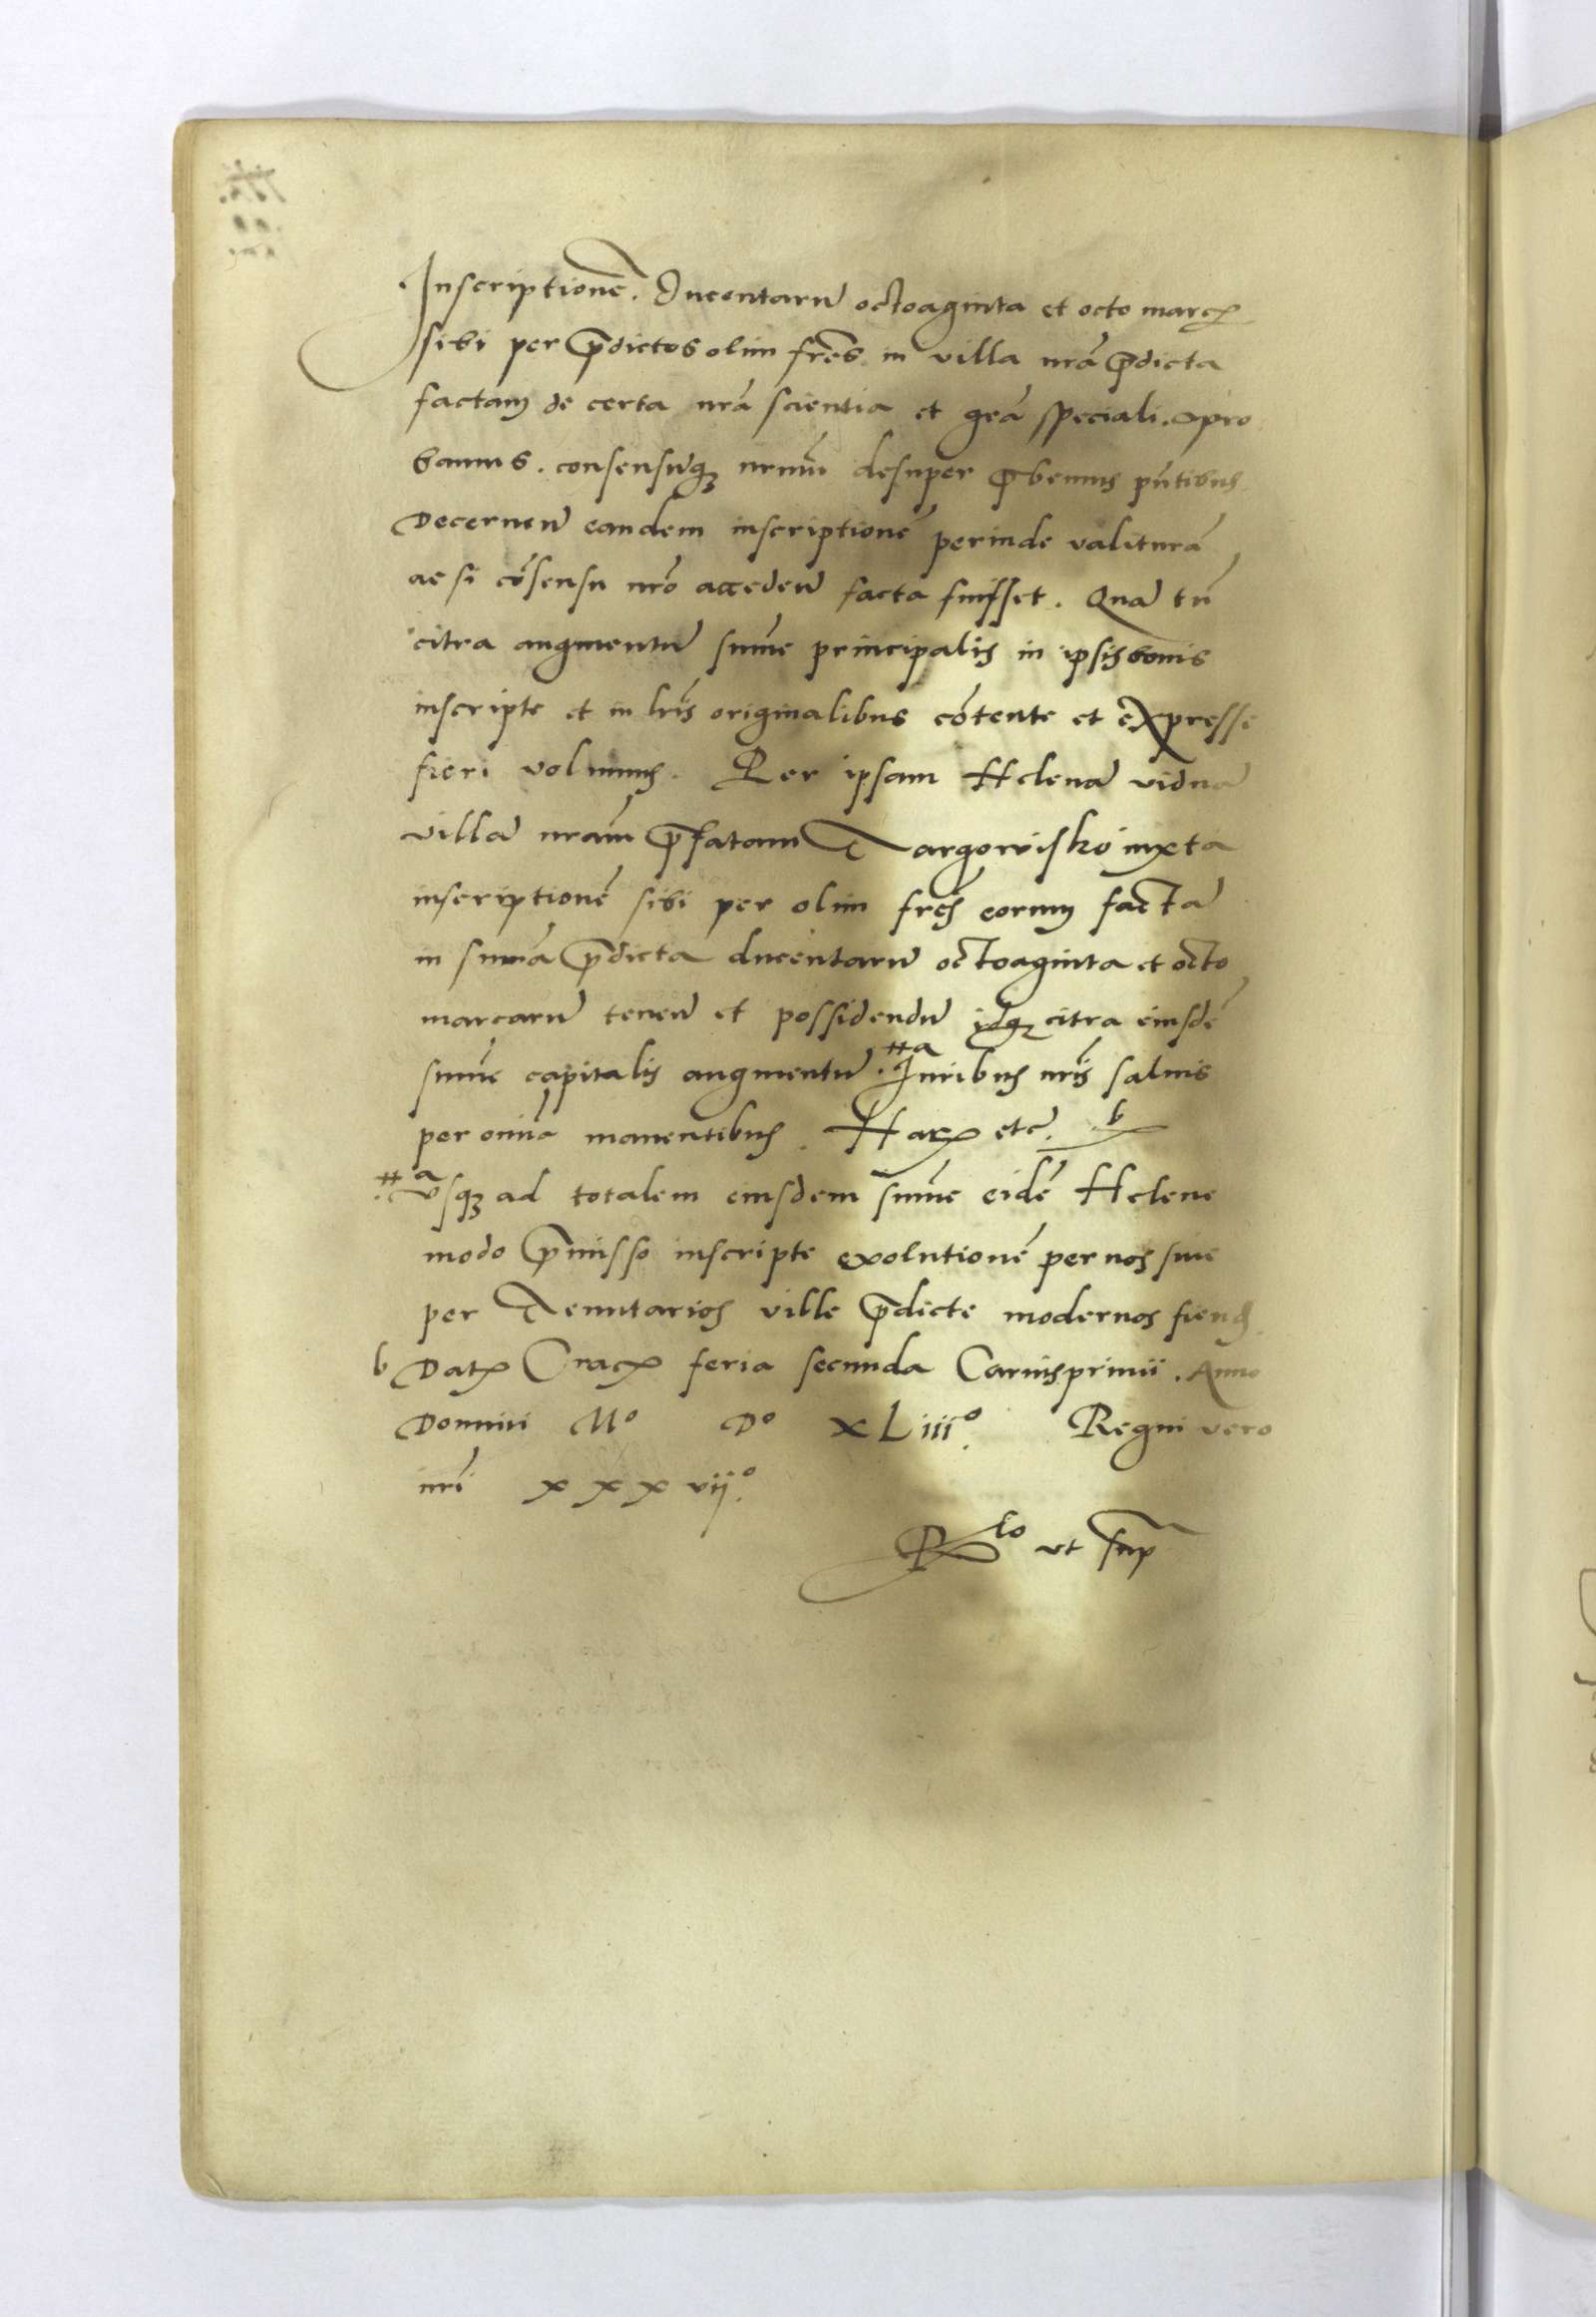 Inscriptionē. Ducentarū octoaginta et octo marcꝝ
sibi per p̄dictos olim frēs in villa nrā p̄dicta
factam de certa nrā scientia et grā speciali. Apro
bamus. consensūqꝫ nrūm desuper p̄bemus pn̄tibus
Decernen̄ eandem inscriptionē perinde valiturā
ac si cōsensu nrō acceden̄ facta fuisset. Quā tn̄
citra augmentū sum̄e principalis in ipsis bonis
inscripte et in lrīs originalibus cōtente et expresse
fieri volumus. Per ipsam Helenā viduā
villā nrām p̄fatam Targowisko iuxta
inscriptionē sibi per olim frēs eorum factā
in sum̄a p̄dicta ducentarū octoaginta et octo
marcarū tenen̄ et possidendū idqꝫ citra eiusdē
sum̄e capitalis augmentū. #a Iuribus nrīs saluis
per omīa manentibus. Harꝝ etc̄. b
#a vsqꝫ ad totalem eiusdem sum̄e eidē Helene
modo p̄misso inscripte exolutionē per nos siue
per Tenutarios ville p̄dicte modernos fiend̄
b Datꝝ Cracꝝ feria secunda Carnisprimii. Anno
Domini Mº Dº XLiiiº. Regni vero
nrī xxxviiº.
Rto vt sup̄